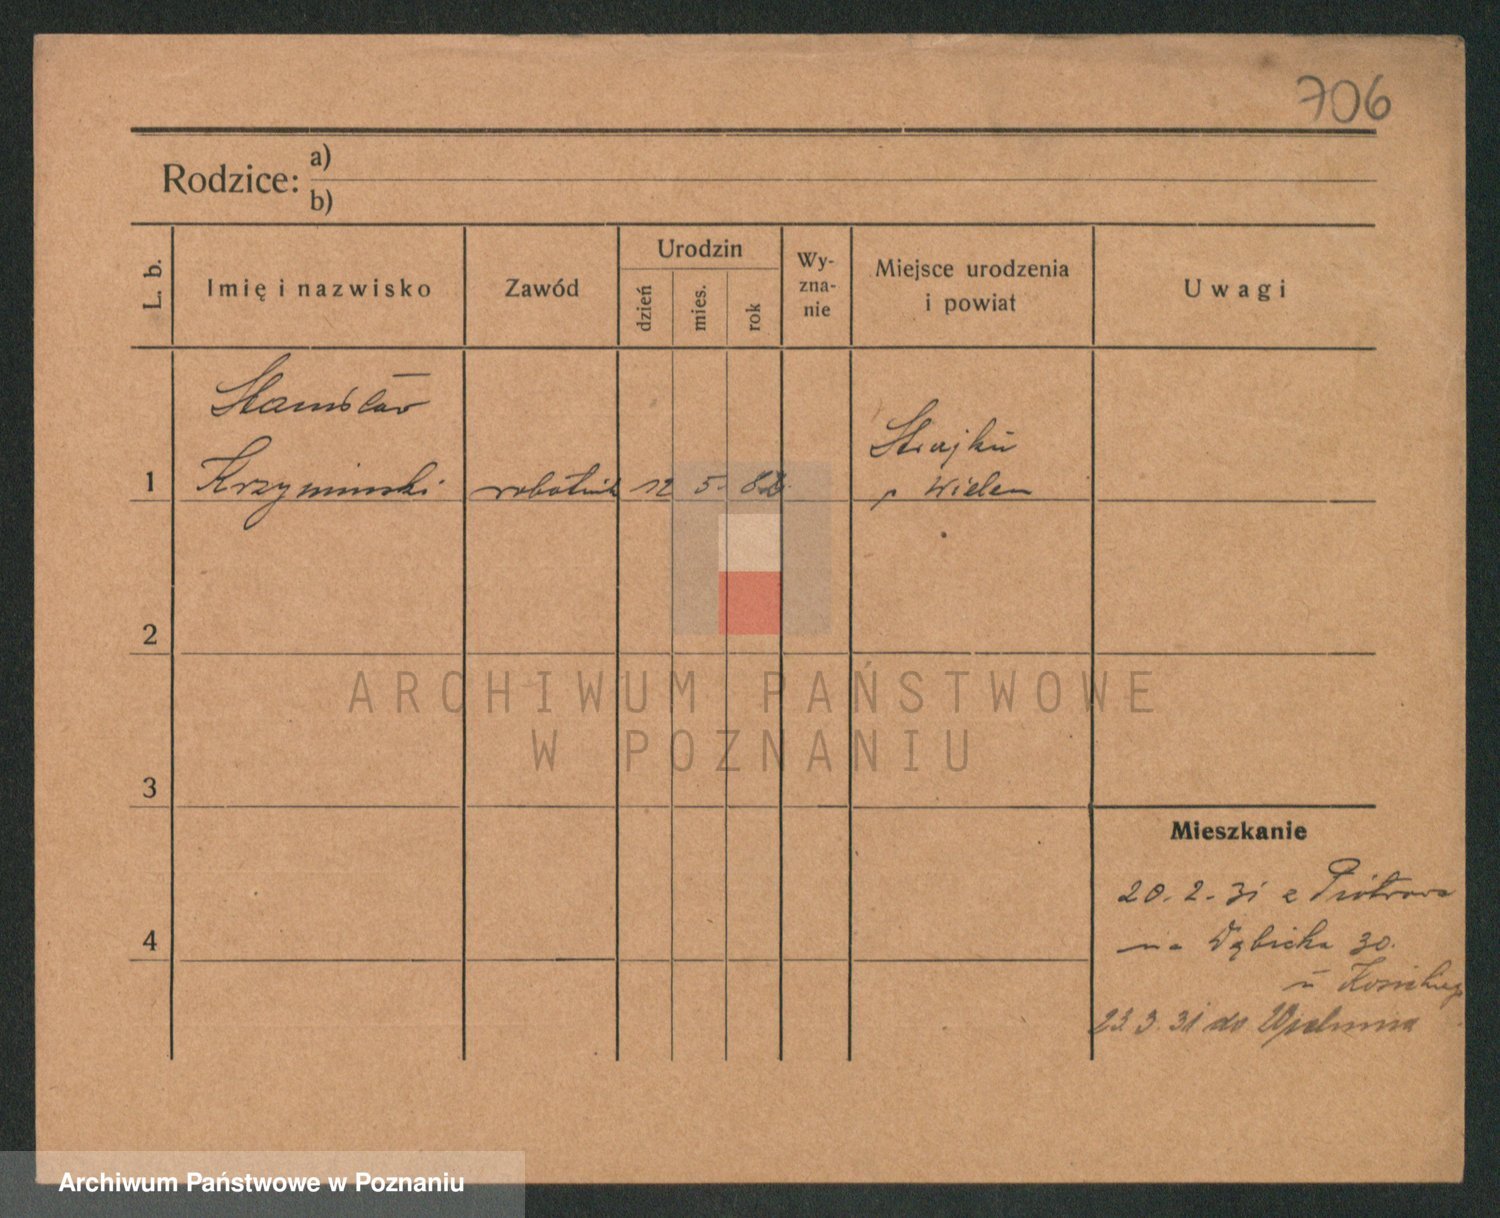 706
Rodzice: a)
b)
L. b.
Imię i nazwisko
Zawód
Urodzin
dzień
mies.
rok
Wy-
zna-
nie
Miejsce urodzenia
i powiat
Uwagi
Stanisław
Krzyminski
1
robotnik
12
5.
p Wielen
2
3
4
Mieszkanie
20. 2. 31 z Piotrowa
na Dębicka 30.
23. 3. 31 do
ARCHIWUM PAŃSTWOWE
W POZNANIU
Archiwum Państwowe w Poznaniu